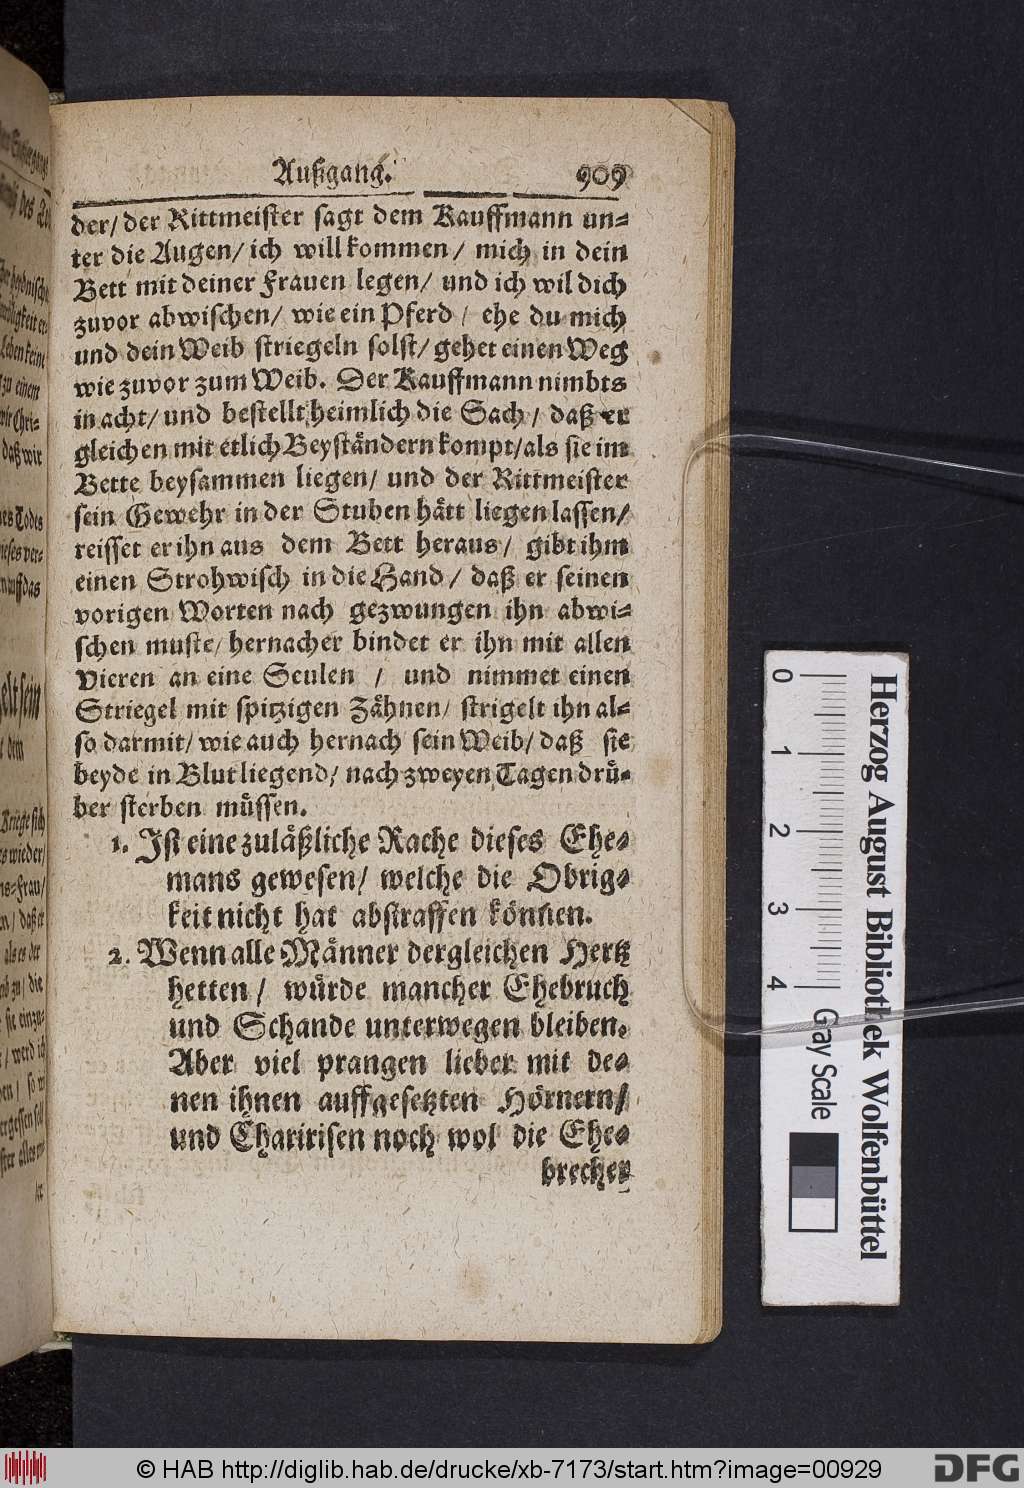 Außgang. 909
der/ der Rittmeister sagt dem Kauffmann un-
ter die Augen/ ich will kommen/ mich in dein
Bett mit deiner Frauen legen/ und ich wil dich
zuvor abwischen/ wie ein Pferd/ ehe du mich
und dein Weib striegeln solst/ gehet einen Weg
wie zuvor zum Weib. Der Kauffmann nimbts
in acht/ und bestellt heimlich die Sach/ daß er
gleichen mit etlich Beyständern kompt/ als sie im
Bette beysammen liegen/ und der Rittmeister
sein Gewehr in der Stuben hätt liegen lassen/
reisset er ihn aus dem Bett heraus/ gibt ihm
einen Strohwisch in die Hand/ daß er seinen
vorigen Worten nach gezwungen ihn abwi-
schen muste/ hernacher bindet er ihn mit allen
Vieren an eine Seulen / und nimmet einen
Striegel mit spitzigen Zähnen/ strigelt ihn al-
so darmit/ wie auch hernach sein Weib/ daß sie
beyde in Blut liegend/ nach zweyen Tagen drü-
ber sterben müssen.
1. Ist eine zuläßliche Rache dieses Ehe-
mans gewesen/ welche die Obrig-
keit nicht hat abstraffen können.
2. Wenn alle Männer dergleichen Hertz
hetten/ würde mancher Ehebruch
und Schande unterwegen bleiben.
Aber viel prangen lieber mit de-
nen ihnen auffgesetzten Hörnern/
und Charirisen noch wol die Ehe-
brecher
0 1 2 3 4 Gray Scale
Herzog August Bibliothek Wolfenbüttel
© HAB http://diglib.hab.de/drucke/xb-7173/start.htm?image=00929
DFG